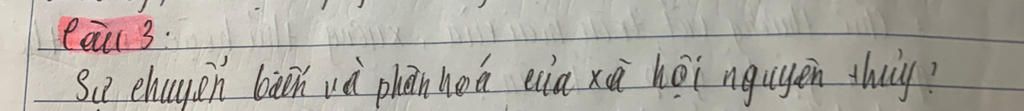 Câu 3:
Sự chuyển biến và phân hoá của xã hội nguyên thủy?